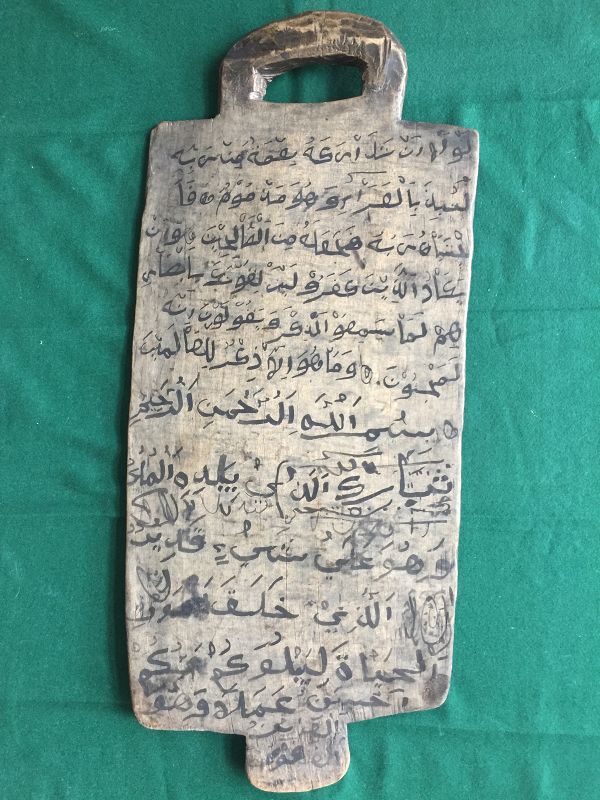 لَوْلَا أَنْ تَدَارَكَهُ نِعْمَةٌ مِنْ رَبِّهِ
لَنُبِذَ بِالْعَرَاءِ وَهُوَ مَذْمُومٌ فَا
جْتَبَاهُ رَبُّهُ فَجَعَلَهُ مِنَ الصَّالِحِينَ وَإِنْ
يَكَادُ الَّذِينَ كَفَرُوا لَيَزْلِقُونَكَ بِأَبْصَارِ
هِمْ لَمَّا سَمِعُوا الذِّكْرَ وَيَقُولُونَ إِنَّهُ
لَمَجْنُونٌ وَمَا هُوَ إِلَّا ذِكْرٌ لِلْعَالَمِينَ
بِسْمِ اللَّهِ الرَّحْمَنِ الرَّحِيمِ
تَبَارَكَ الَّذِي بِيَدِهِ الْمُلْكُ
وَهُوَ عَلَى كُلِّ شَيْءٍ قَدِيرٌ
الَّذِي خَلَقَ الْمَوْتَ
وَالْحَيَاةَ لِيَبْلُوَكُمْ أَيُّكُمْ
أَحْسَنُ عَمَلًا وَهُوَ
الْعَزِيزُ
الْغَفُورُ